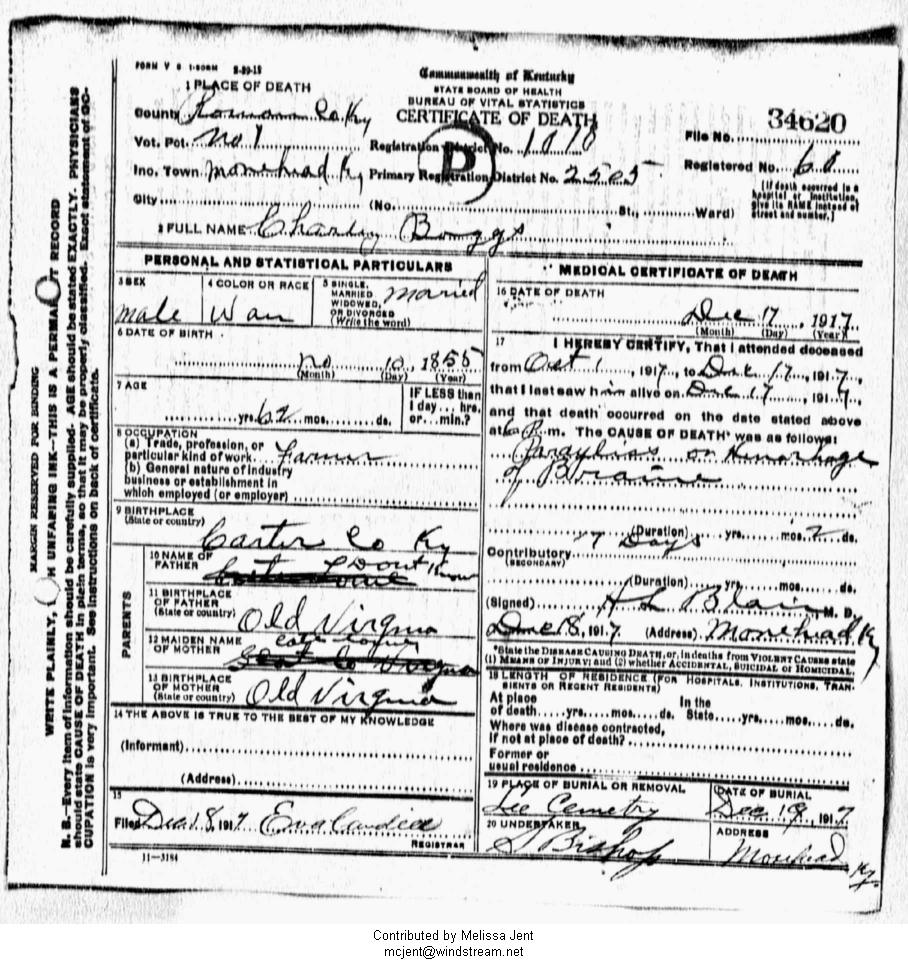 FORM V S 1-50M 8-29-15
Commonwealth of Kentucky
STATE BOARD OF HEALTH
BUREAU OF VITAL STATISTICS
CERTIFICATE OF DEATH
1 PLACE OF DEATH
County Co. Ky
Vot. Pct. No 1
Inc. Town Morehead Ky
City
Registration District No. 1010
Primary Registration District No. 2505
(No. St., Ward)
34620
File No.
Registered No. 68
[If death occurred in a
hospital or institution,
give its NAME instead of
street and number.]
P
2 FULL NAME Charley Boggs
PERSONAL AND STATISTICAL PARTICULARS
3 SEX
male
4 COLOR OR RACE
5 SINGLE,
MARRIED
WIDOWED,
OR DIVORCED
(Write the word)
Married
6 DATE OF BIRTH
10, 1855
(Month) (Day) (Year)
7 AGE
yrs. 62 mos. ds.
IF LESS than
1 day... hrs.
or... min.?
8 OCCUPATION
(a) Trade, profession, or
particular kind of work Farmer
(b) General nature of industry
business or establishment in
which employed (or employer)
9 BIRTHPLACE
(State or country)
Carter Co Ky
PARENTS
10 NAME OF
FATHER
Dont Know
11 BIRTHPLACE
OF FATHER
(State or country)
Old Virginia
12 MAIDEN NAME
OF MOTHER
13 BIRTHPLACE
OF MOTHER
(State or country)
Old Virginia
14 THE ABOVE IS TRUE TO THE BEST OF MY KNOWLEDGE
(Informant)
(Address)
15
Filed Dec 18, 1917 Eva
REGISTRAR
11-3184
MEDICAL CERTIFICATE OF DEATH
16 DATE OF DEATH
Dec 17, 1917
(Month) (Day) (Year)
17 I HEREBY CERTIFY, That I attended deceased
from Oct 1, 1917, to Dec 17, 1917,
that I last saw him alive on Dec 17, 1917,
and that death occurred on the date stated above
at 6 P. m. The CAUSE OF DEATH* was as follows:
or Hemorhage
of Braine
(Duration) yrs. mos. 2 ds.
Days
Contributory
(SECONDARY)
(Duration) yrs. mos. ds.
(Signed) H L Blair M. D.
Dec 18, 1917 (Address) Morehead Ky
*State the DISEASE CAUSING DEATH, or, in deaths from VIOLENT CAUSES state
(1) MEANS OF INJURY; and (2) whether ACCIDENTAL, SUICIDAL or HOMICIDAL.
18 LENGTH OF RESIDENCE (FOR HOSPITALS, INSTITUTIONS, TRAN-
SIENTS OR RECENT RESIDENTS)
At place
of death yrs. mos. ds.
In the
State yrs. mos. ds.
Where was disease contracted,
If not at place of death?
Former or
usual residence
19 PLACE OF BURIAL OR REMOVAL
Lee Cemetry
DATE OF BURIAL
Dec 19, 1917
20 UNDERTAKER
S Bishop
ADDRESS
Morehead Ky.
MARGIN RESERVED FOR BINDING
WRITE PLAINLY, WITH UNFADING INK—THIS IS A PERMANENT RECORD
N. B.—Every item of information should be carefully supplied. AGE should be stated EXACTLY. PHYSICIANS
should state CAUSE OF DEATH in plain terms, so that it may be properly classified. Exact statement of OC-
CUPATION is very important. See instructions on back of certificate.
Contributed by Melissa Jent
mcjent@windstream.net